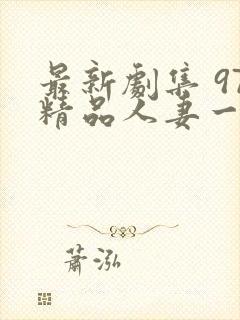 最新劇集 97
精品人妻一
蕭泓